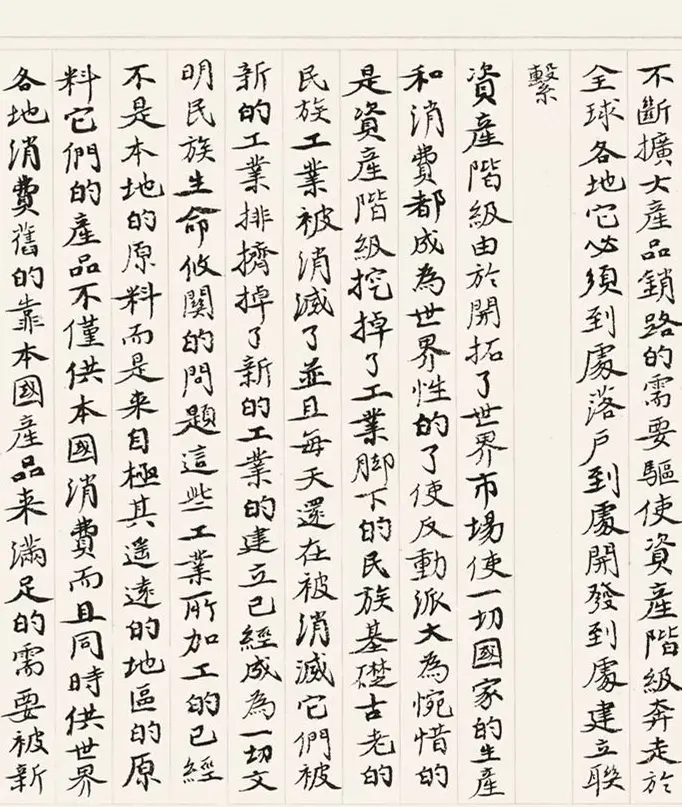 不斷擴大產品銷路的需要驅使資產階級奔走於
全球各地它必須到處落戶到處開發到處建立聯
繫
資產階級由於開拓了世界市場使一切國家的生產
和消費都成為世界性的了使反動派大為惋惜的
是資產階級挖掉了工業脚下的民族基礎古老的
民族工業被消滅了並且每天還在被消滅它們被
新的工業排擠掉了新的工業的建立已經成為一切文
明民族生命攸關的問題這些工業所加工的已經
不是本地的原料而是来自極其遥遠的地區的原
料它們的產品不僅供本國消費而且同時供世界
各地消費舊的靠本國產品来滿足的需要被新